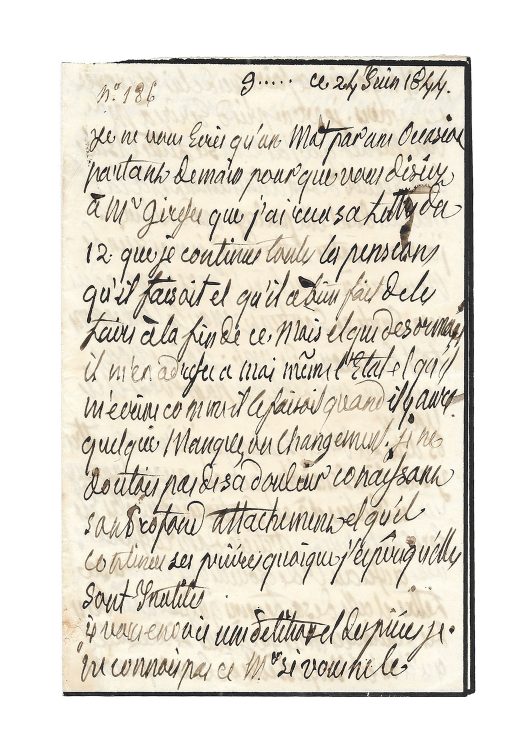 n° 186
g..... ce 24 Juin 1844.
Je ne vous Ecris qu'un Mot par une Occasion
partant demain pour que vous disiez
à Mr que j'ai reçu sa Lettre du
12. que je continue toute les pensions
qu'il faisoit et qu'il a bien fait de les
faire à la fin de ce Mois et que desormais
il m'en adresse a moi même l'Etat et qu'il
m'ecrive comme il le faisoit quand il y aura
quelque Manque ou Changement. je ne
doutois pas de sa douleur conaissant
son Profond attachement et qu'il
continue ses prières quoique j'espère qu'elles
sont Inutiles
je vous envoie une et des pièces je
ne connois pas ce Mr si vous ne le